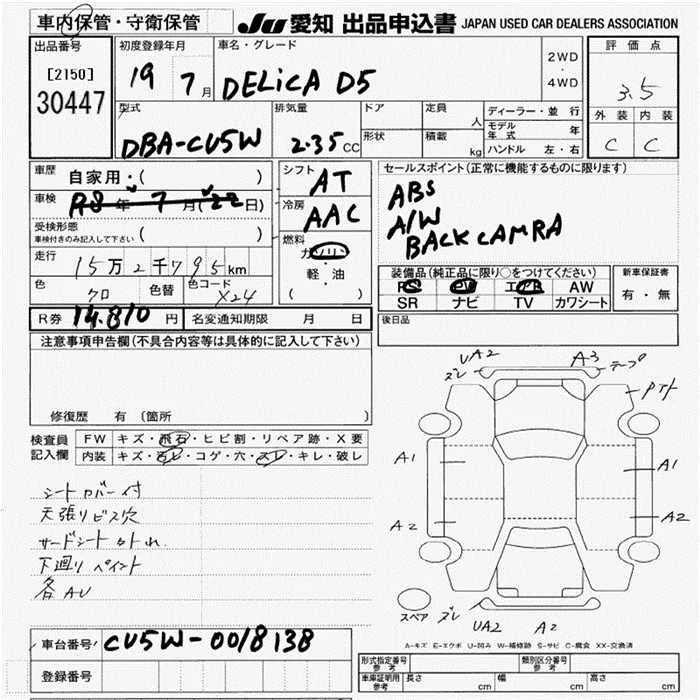 車内保管・守衛保管
JU 愛知 出品申込書 JAPAN USED CAR DEALERS ASSOCIATION
出品番号
[2150]
30447
初度登録年月
19 7月
車名・グレード
DELiCA D5
2WD
・
4WD
評価点
3.5
外装 内装
C C
型式
DBA-CU5W
排気量
2.35cc
ドア
形状
定員 人
積載 kg
ディーラー・並行
モデル年式 年
ハンドル 左・右
車歴
自家用・( )
車検
R8年 7月(22日)
受検形態
車検付きのみ記入して下さい ( )
走行
15万2千795km
色 クロ 色替 色コード X24
シフト
AT
冷房
AAC
燃料
ガソリン
軽・油
( )
セールスポイント(正常に機能するものに限ります)
ABS
A/W
BACK CAMRA
装備品(純正品に限り○をつけてください)
PS PW エアB AW
SR ナビ TV カワシート
新車保証書
有・無
R券 14.810円 名変通知期限 月 日
後日品
注意事項申告欄(不具合内容等は具体的に記入して下さい)
修復歴 有 (箇所 )
検査員記入欄
FW キズ・飛石・ヒビ割・リペア跡・X要
内装 キズ・ヨゴレ・コゲ・穴・スレ・キレ・破レ
シートカバー付
天張リビス穴
サードシート外れ
下廻リペイント
各AU
UA2 A3
ズレ テープ
Pタテ
A1 A1
A2 A2
スペア
ズレ
UA2 A2
A-キズ E-エクボ U-凹み W-補修跡 S-サビ C-腐食 XX-交換済
車台番号 CU5W-0018138
登録番号
形式指定番号 参考 類別区分番号 参考
車庫証明用 参考 長さ cm 幅 cm 高さ cm